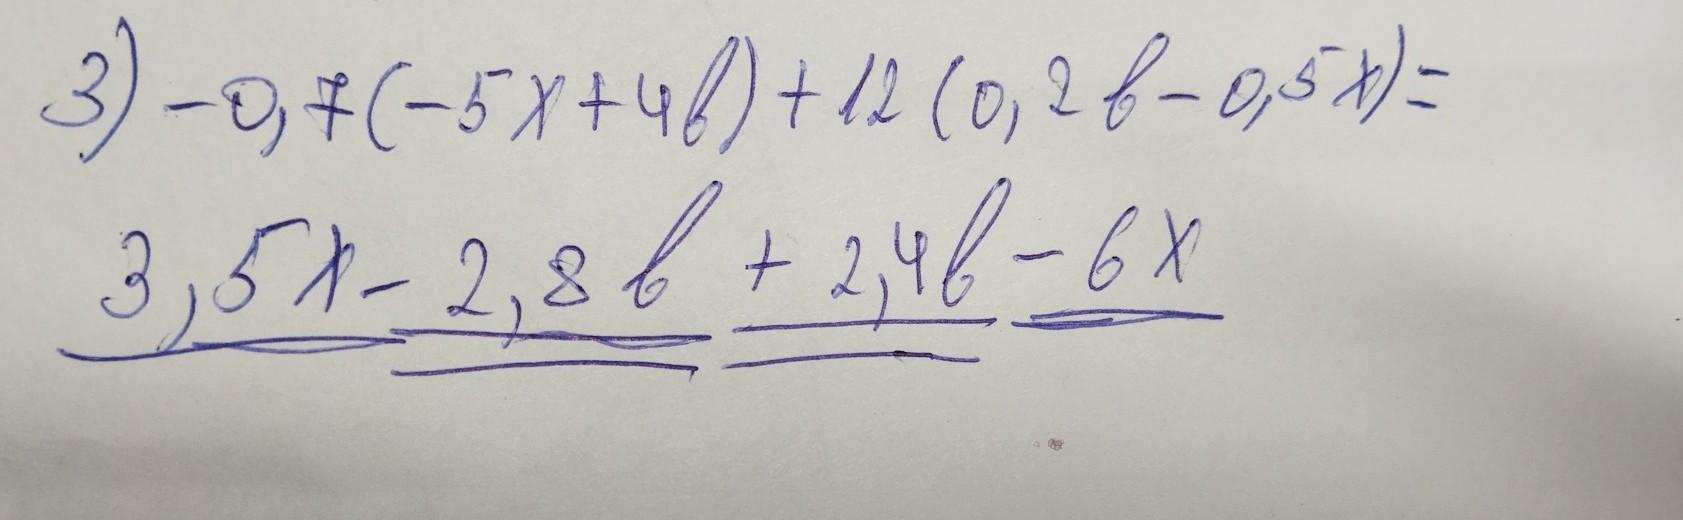 3) -0,7(-5x+4b)+12(0,2b-0,5x)=
3,5x-2,8b+2,4b-6x